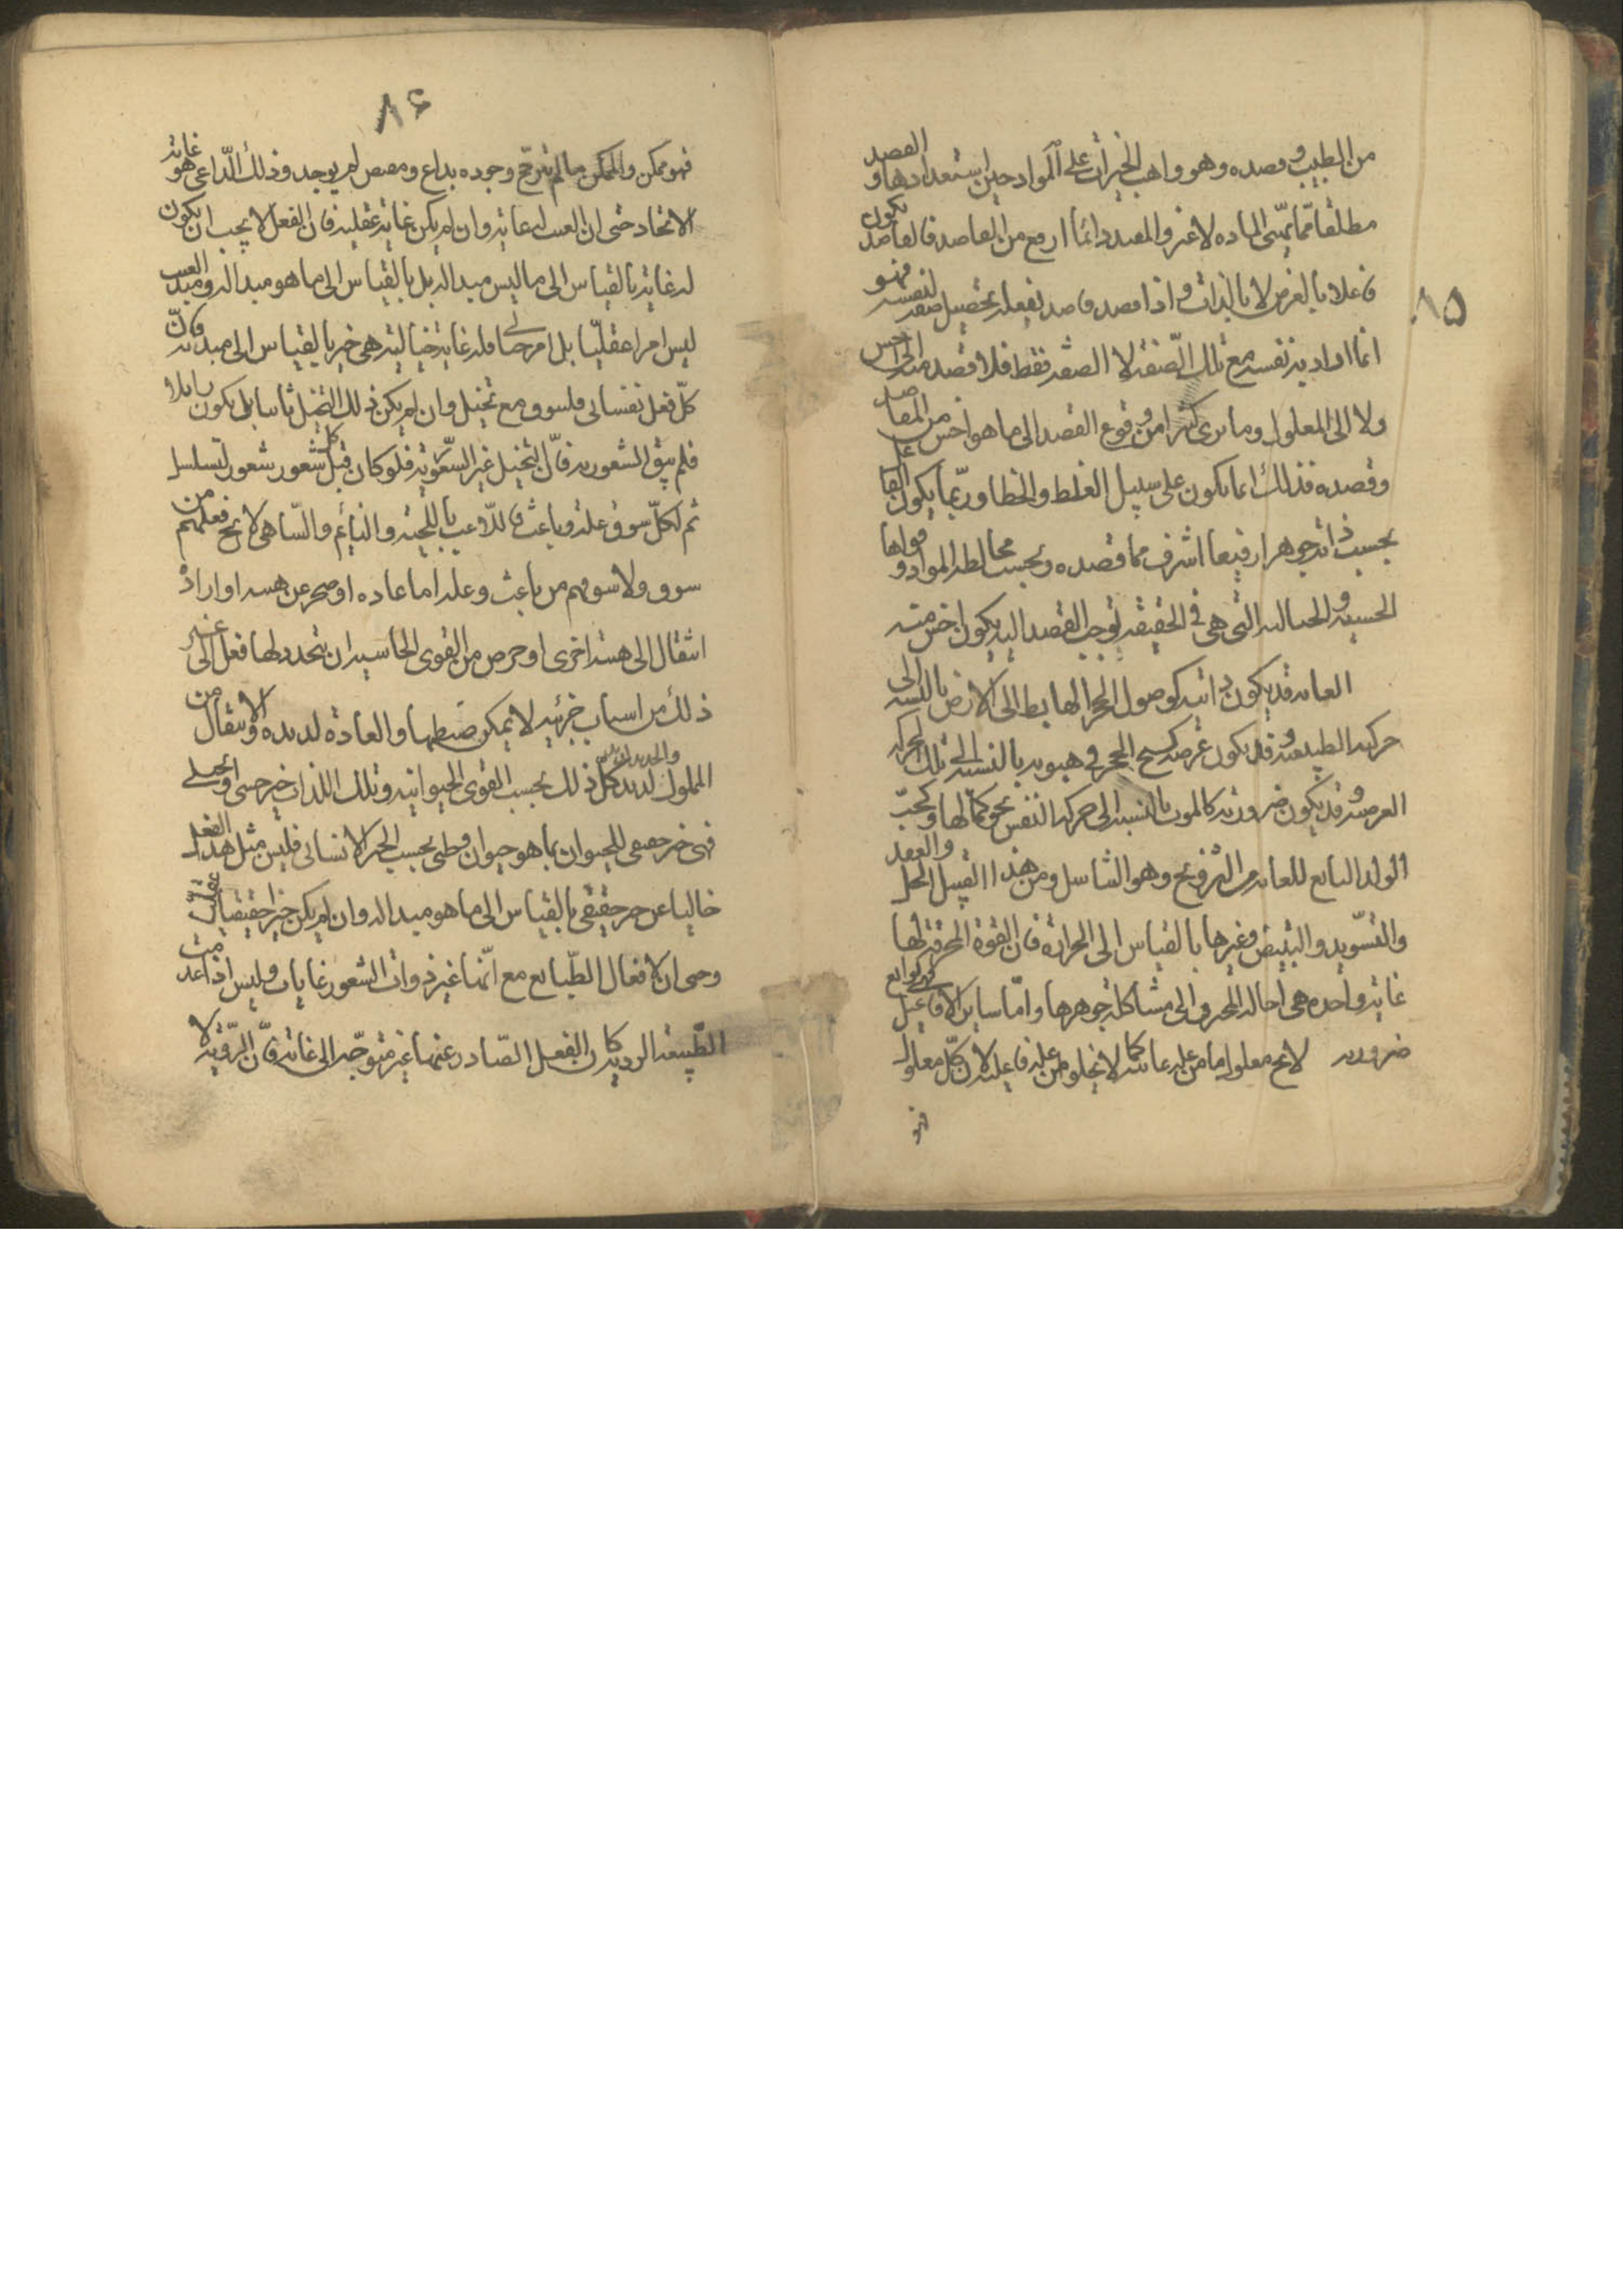 ٨٥
من الطبيب وقصده وهو واهب الخيرات على المواد حين استعدادها والقصد
مطلقا مما يهيئ الماده لا غير والمفيد دائما ارفع من القاصد فالقاصد يكون
فاعلا بالعرض لا بالذات واذا قصد قاصد بفعله تحصيل صفة لنفسه فهو
انما افاد به نفسه مع تلك الصفة لا الصفة فقط فلا قصد الى اخس
ولا الى المعلول وما نرى كثيرا من وقوع القصد الى ما هو اخس من المقاصد
وقصده فذلك انما يكون على سبيل الغلط والخطا وربما يكون الفاعل
بحسب ذاته جوهرا رفيعا اشرف مما قصده وبحسب مخالطة المواد وقواها
الحسية والخيالية التي هي في الحقيقة توجب القصد اليه يكون اخس منه
الغاية قد يكون ذاتية كوصول الحجر الهابط الى الارض بالنسبة الى
حركته الطبيعية وقد يكون عرضية كشج الحجر في هبوبه بالنسبة الى تلك الحركة
العرضية وقد يكون ضرورية كالموت بالنسبة الى حركة النفس نحو كمالها وكحب
الولد التابع للغاية من التزويج وهو التناسل ومن هذا القبيل الحل والعقد
والتسويد والتبييض وغيرها بالقياس الى الحرارة فان القوة المحرقة لها
غاية واحده هي احالة المحترق الى مشاكلة جوهرها واما ساير الافاعيل فهي توابع
ضرورية لا يخ معلول ما من علة غائية كما لا يخلو من علة فاعلية لان كل معلول
فهو
٨٦
فهو ممكن والممكن ما لم يترجح وجوده بداع ومقتض لم يوجد وذلك الداعي هو غاية
الاتحاد حتى ان العبث له غاية وان لم يكن غاية عقلية فان الفعل لا يجب ان يكون
له غاية بالقياس الى ما ليس مبدا له بل بالقياس الى ما هو مبدا له ومبدء العبث
ليس امرا عقليا بل امر خيالي فله غاية خيالية هي خير بالقياس الى مبدئه فان
كل فعل نفساني فلشوق مع تخيل وان لم يكن ذلك التخيل ثابتا بل يكون زايلا
فلم يبق الشعور به فان التخيل غير الشعور به فلو كان قبل كل شعور شعور لتسلسل
ثم لكل شوق علة وباعث فاللاعب باللحية والنائم والساهي لا يخ فعلهم من
شوق ولا شوقهم من باعث وعلة اما عادة او ضجر عن هيئة او ارادة
انتقال الى هيئة اخرى او حرص من القوى الحاسة ان يتجدد لها فعل الى غير
ذلك من اسباب جزئية لا يمكن ضبطها والعادة لذيذة والانتقال من
المملول لذيذ والجديد لذيذ كل ذلك بحسب القوى الحيوانية وتلك اللذات خير حسي وتخيلي
فهي خير حقيقي للحيوان بما هو حيوان وظني بحسب الخير الانساني فليس مثل هذا الفعل
خاليا عن خير حقيقي بالقياس الى ما هو مبدا له وان لم يكن خيرا حقيقيا عقليا
وحتى ان لافعال الطبايع مع انها غير ذوات الشعور غايات وليس اذا عدمت
الطبيعة الروية كان الفعل الصادر عنها غير متوجه الى غاية فان الروية لا